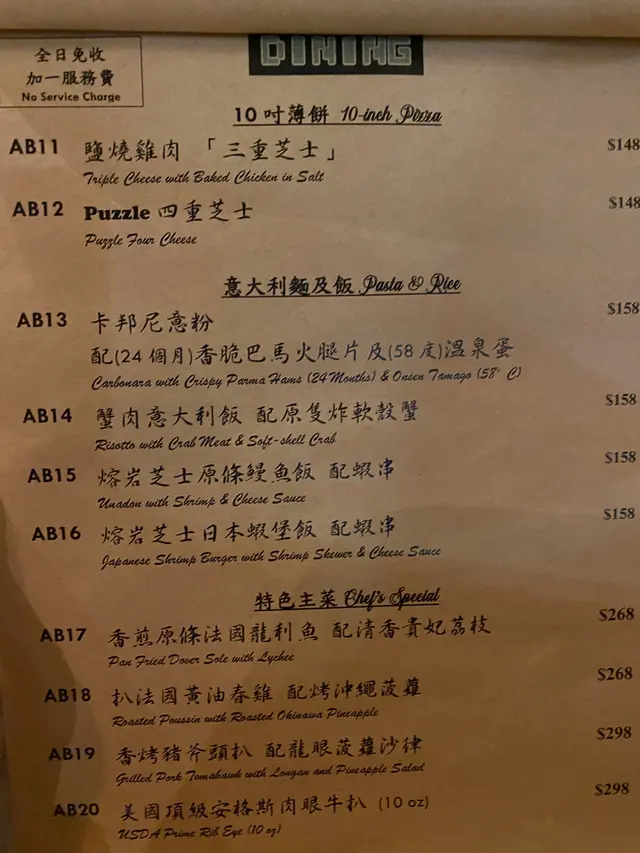 DINING
全日免收
加一服務費
No Service Charge
10 吋薄餅 10-inch Pizza
AB11 鹽燒雞肉 「三重芝士」 $148
Triple Cheese with Baked Chicken in Salt
AB12 Puzzle 四重芝士 $148
Puzzle Four Cheese
意大利麵及飯 Pasta & Rice
AB13 卡邦尼意粉 $158
配(24 個月)香脆巴馬火腿片及(58 度)溫泉蛋
Carbonara with Crispy Parma Hams (24 Months) & Onsen Tamago (58° C)
AB14 蟹肉意大利飯 配原隻炸軟殼蟹 $158
Risotto with Crab Meat & Soft-shell Crab
AB15 熔岩芝士原條鰻魚飯 配蝦串 $158
Unadon with Shrimp & Cheese Sauce
AB16 熔岩芝士日本蝦堡飯 配蝦串 $158
Japanese Shrimp Burger with Shrimp Skewer & Cheese Sauce
特色主菜 Chef's Special
AB17 香煎原條法國龍利魚 配清香貴妃荔枝 $268
Pan Fried Dover Sole with Lychee
AB18 扒法國黃油春雞 配烤沖繩菠蘿 $268
Roasted Poussin with Roasted Okinawa Pineapple
AB19 香烤豬斧頭扒 配龍眼菠蘿沙律 $298
Grilled Pork Tomahawk with Longan and Pineapple Salad
AB20 美國頂級安格斯肉眼牛扒 (10 oz) $298
USDA Prime Rib Eye (10 oz)